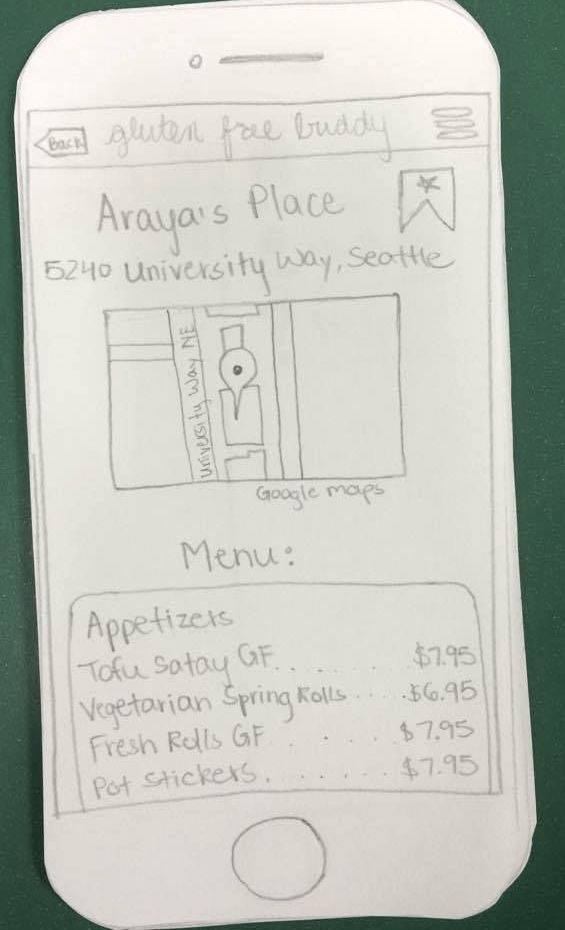 Back gluten free buddy
Araya's Place
5240 University Way, Seattle
University Way NE
Google maps
Menu:
Appetizers
Tofu Satay GF........$7.95
Vegetarian Spring Rolls.....$6.95
Fresh Rolls GF......$7.95
Pot Stickers.......$7.95